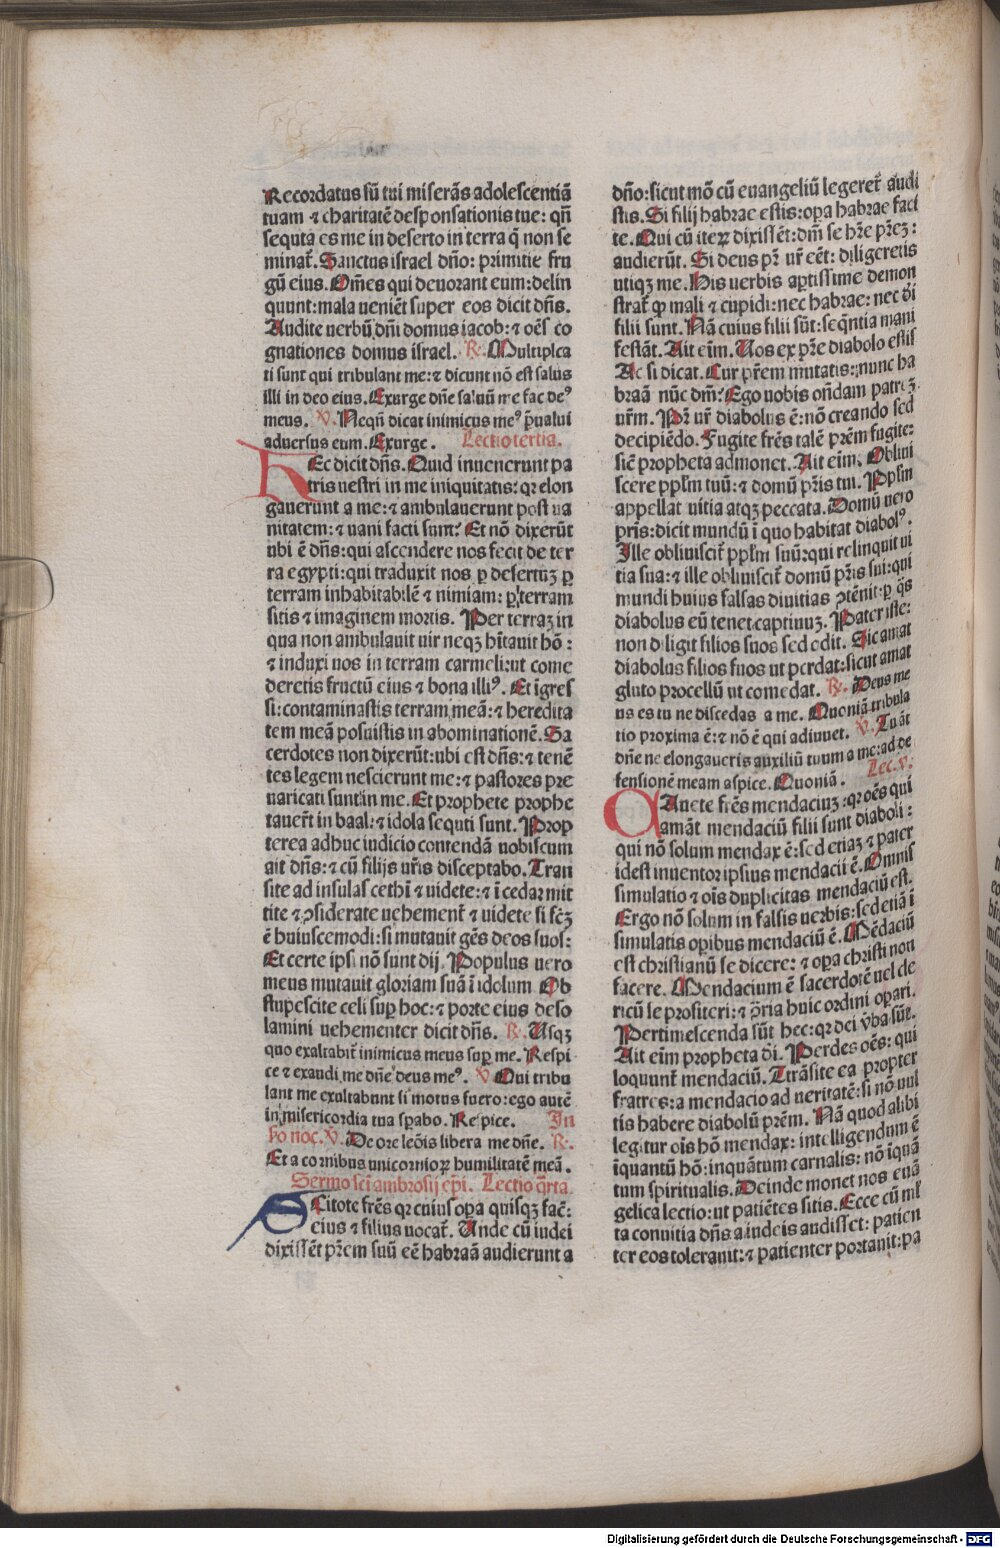 Recordatus sū tui miserās adolescentiā
tuam ⁊ charitatē desponsationis tue: qñ
sequta es me in deserto in terra q̄ non se
minat̄. Sanctus israel dño: primitie fru
gū eius. Om̄es qui deuorant eum: delin
quunt: mala ueniēt super eos dicit dñs.
Audite uerbū dñi domus iacob: ⁊ oēs co
gnationes domus israel. ℟. Multiplca
ti sunt qui tribulant me: ⁊ dicunt nō est salus
illi in deo eius. Exurge dñe saluū me fac deꝰ
meus. ℣. Neqñ dicat inimicus meꝰ p̄ualui
aduersus eum. Exurge. Lectio tertia.
Hec dicit dñs. Quid inuenerunt pa
tris uestri in me iniquitatis: qr elon
gauerunt a me: ⁊ ambulauerunt post ua
nitatem: ⁊ uani facti sunt? Et nō dixerūt
ubi ē dñs: qui ascendere nos fecit de ter
ra egypti: qui traduxit nos ꝑ desertuꝫ ꝑ
terram inhabitabilē ⁊ nimiam: ꝑ terram
sitis ⁊ imaginem mortis. Per terraꝫ in
qua non ambulauit uir neqꝫ hītauit hō:
⁊ induxi uos in terram carmeli: ut come
deretis fructū eius ⁊ bona illiꝰ. Et īgres
si: contaminastis terram meā: ⁊ heredita
tem meā posuistis in abominationē. Sa
cerdotes non dixerūt: ubi est dñs: ⁊ tenē
tes legem nescierunt me: ⁊ pastores pre
uaricati sunt in me. Et prophete prophe
tauer̄t in baal: ⁊ idola sequti sunt. Prop
terea adhuc iudicio contendā uobiscum
ait dñs: ⁊ cū filijs ur̄is disceptabo. Tran
site ad insulas cethī ⁊ uidete: ⁊ ī cedar mit
tite ⁊ ꝯsiderate uehement̄ ⁊ uidete si fc̄ꝫ
ē huiuscemodi: si mutauit gēs deos suos:
Et certe ipsi nō sunt dij. Populus uero
meus mutauit gloriam suā ī idolum. Ob
stupescite celi suꝑ hoc: ⁊ porte eius deso
lamini uehementer dicit dñs. ℟. Usqꝫ
quo exaltabit̄ inimicus meus suꝑ me. Respi
ce ⁊ exaudi me dñe deus meꝰ. ℣ Qui tribu
lant me exultabunt si motus fuero: ego autē
in misericordia tua spabo. Respice. In
ſo noc. ℣. De ore leōis libera me dñe. ℟.
Et a cornibus unicornioꝝ humilitatē meā.
Sermo sci ambrosij epi. Lectio q̄rta.
Scitote fr̄es qr cuius oꝑa quisqꝫ facē:
eius ⁊ filius uocat̄. Unde cū iudei
dixissēt pr̄em suū eē habraā audierunt a
dño: sicut mō cū euangeliū legeret̄ audi
stis. Si filij habrae estis: oꝑa habrae faci
te. Qui cū iteꝝ dixissēt: dm̄ se hr̄e pr̄eꝫ:
audierūt. Si deus pr̄ ur̄ eēt: diligeretis
utiqꝫ me. His uerbis aptissime demon
strat̄ ꝙ mali ⁊ cupidi: nec habrae: nec d̄i
filij sunt. Nā cuius filij sūt: seq̄ntia mani
festāt. Ait eīm. Uos ex pr̄e diabolo estis
Ac si dicat. Cur pr̄em mutatis: nunc ha
braā nūc dm̄? Ego uobis on̄dam patreꝫ
ur̄m. Pr̄ ur̄ diabolus ē: nō creando sed
decipiēdo. Fugite fr̄es talē pr̄em fugite:
sic̄ propheta admonet. Ait eīm. Obliui
scere pplm̄ tuū: ⁊ domū pr̄is tui. Pplm̄
appellat uitia atqꝫ peccata. Domū uero
pris: dicit mundū ī quo habitat diabolꝰ.
Ille obliuiscit̄ pplm̄ suū: qui relinquit ui
tia sua: ⁊ ille obliuiscit̄ domū pr̄is sui: qui
mundi huius falsas diuitias ꝯtēnit: ꝑ q̄s
diabolus eū tenet captiuuꝫ. Pater iste:
non diligit filios suos sed edit. Sic amat
diabolus filios suos ut perdat: sicut amat
gluto procellū ut comedat. ℟. Deus me
us es tu ne discedas a me. Quoniā tribula
tio proxima ē: ⁊ nō ē qui adiuuet. ℣. Tu aūt
dñe ne elongaueris auxiliū tuum a me: ad de
fensionē meam aspice. Quoniā. Lec. v.
Cauete fr̄es mendaciuꝫ: qr oēs qui
amāt mendaciū filii sunt diaboli:
qui nō solum mendax ē: sed etiaꝫ ⁊ pater
idest inuentor ipsius mendacii ē. Omnis
simulatio ⁊ oīs duplicitas mendaciū est.
Ergo nō solum in falsis uerbis: sed etiā ī
simulatis oꝑibus mendaciū ē. Mēdaciū
est christianū se dicere: ⁊ oꝑa christi non
facere. Mendacium ē sacerdotē uel cle
ricū se profiteri: ⁊ ꝯ̄ria huic ordini oꝑari.
Pertimescenda sūt hec: qr dei v̄ba sūt.
Ait eīm propheta d̄i. Perdes oēs: qui
loquunt̄ mendaciū. Trāsite ea propter
fratres: a mendacio ad ueritatē: si nō uul
tis habere diabolū pr̄em. Nā quod alibi
legitur oīs hō mendax: intelligendum ē
īquantū hō: inquātum carnalis: nō īquā
tum spiritualis. Deinde monet nos euā
gelica lectio: ut patiētes sitis. Ecce cū ml̄
ta conuitia dñs a iudeis audisset: patien
ter eos tolerauit: ⁊ patienter portauit: pa
Digitalisierung gefördert durch die Deutsche Forschungsgemeinschaft - DFG